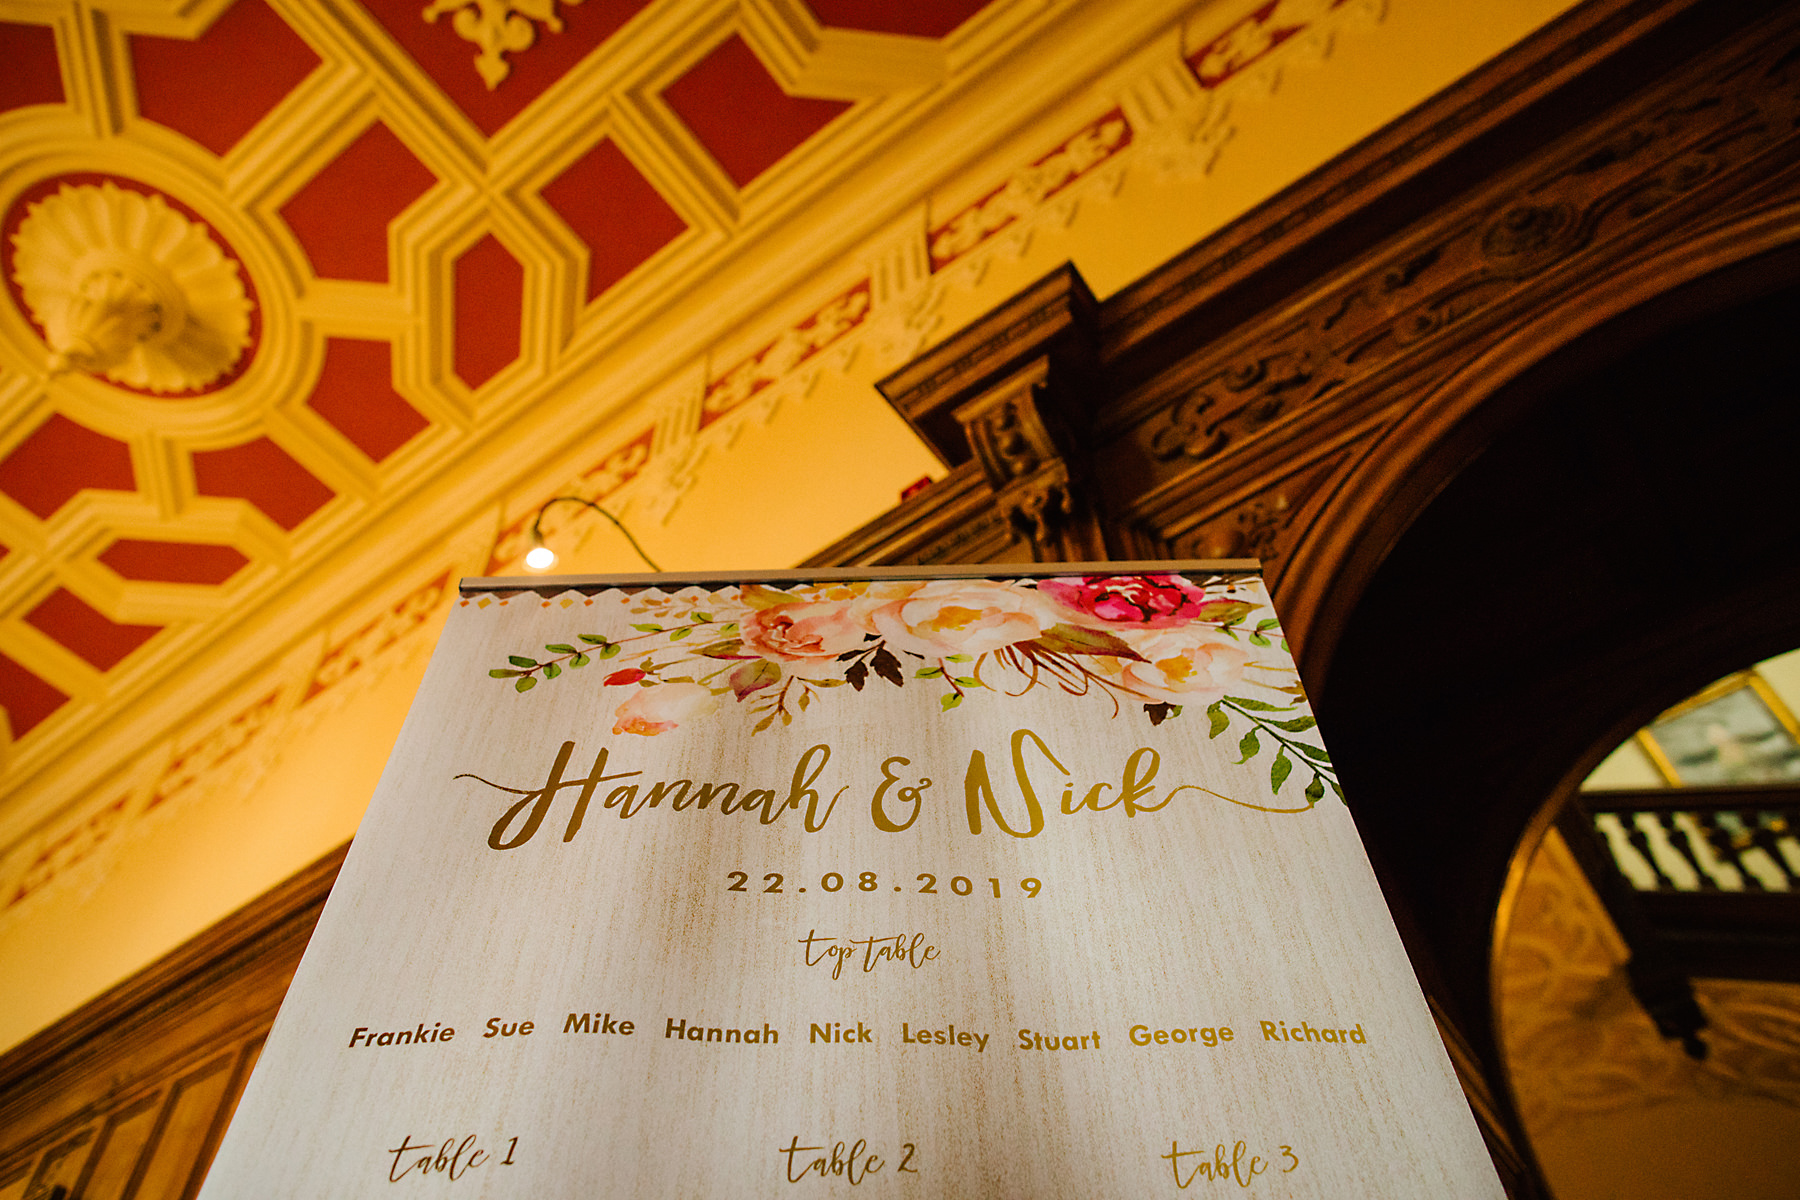 Hannah & Nick
22.08.2019
top table
Frankie Sue Mike Hannah Nick Lesley Stuart George Richard
table 1 table 2 table 3